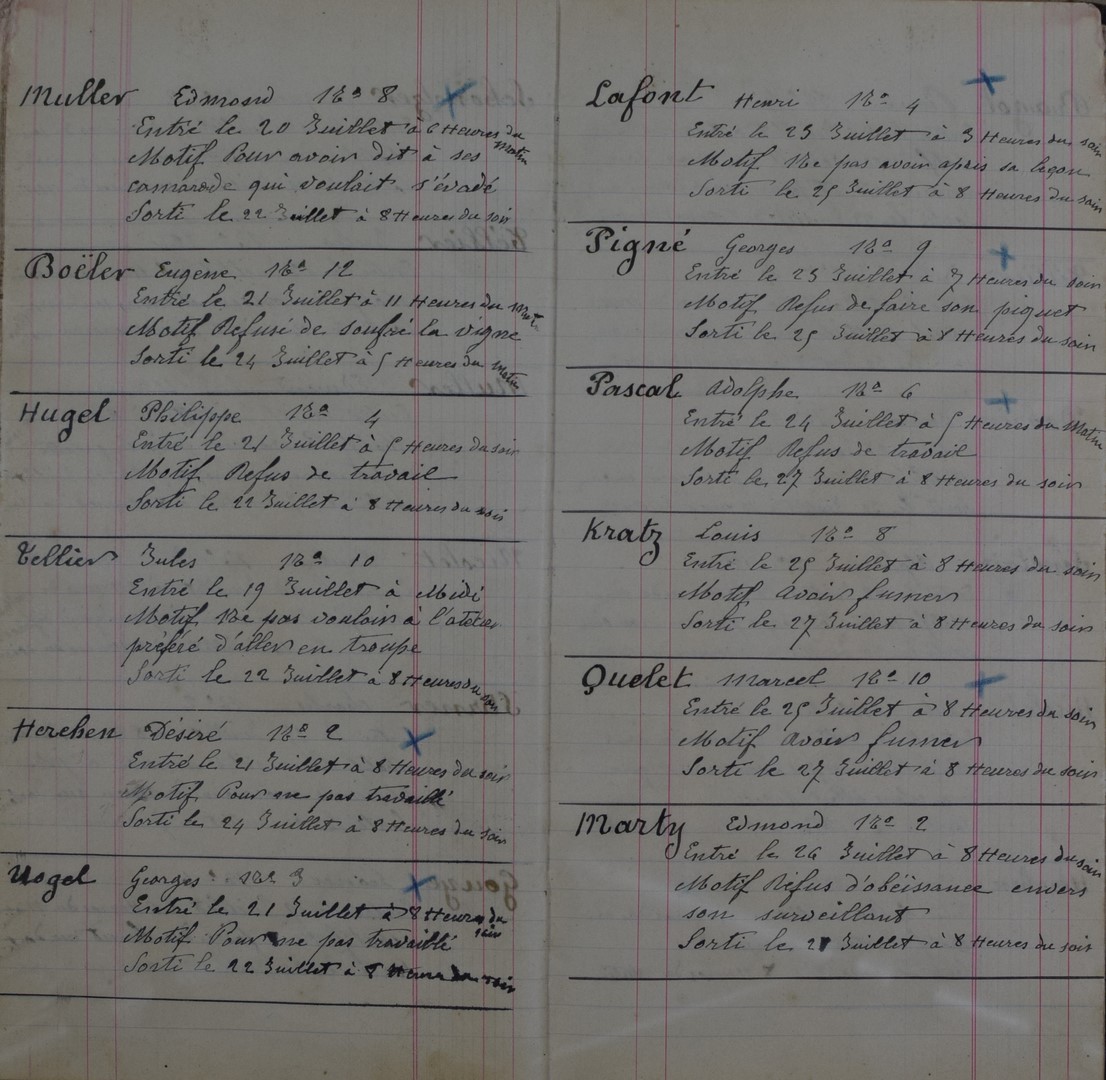 Muller Edmond Nº 8
Entré le 20 Juillet à 6 Heures du Matin
Motif Pour avoir dit à ses
camarade qui voulait s'évadé
Sorti le 22 Juillet à 8 Heures du soir
Boëler Eugène Nº 12
Entré le 21 Juillet à 11 Heures du Matin
Motif Refusé de soufré la vigne
Sorti le 24 Juillet à 5 Heures du Matin
Hugel Philippe Nº 4
Entré le 21 Juillet à 5 Heures du soir
Motif Refus de travail
Sorti le 22 Juillet à 8 Heures du soir
Tellier Jules Nº 10
Entré le 19 Juillet à Midi
Motif Ne pas vouloir à l'atelier
préféré d'aller en troupe
Sorti le 22 Juillet à 8 Heures du soir
Herchen Désiré Nº 2
Entré le 21 Juillet à 8 Heures du soir
Motif Pour ne pas travaillé
Sorti le 24 Juillet à 8 Heures du soir
Vogel Georges Nº 3
Entré le 21 Juillet à 8 Heures du soir
Motif Pour ne pas travaillé
Sorti le 22 Juillet à 8 Heures du soir
Lafont Henri Nº 4
Entré le 23 Juillet à 3 Heures du soir
Motif Ne pas avoir apris sa leçon
Sorti le 25 Juillet à 8 Heures du soir
Pigné Georges Nº 9
Entré le 23 Juillet à 7 Heures du soir
Motif Refus de faire son piquet
Sorti le 25 Juillet à 8 Heures du soir
Pascal Adolphe Nº 6
Entré le 24 Juillet à 5 Heures du Matin
Motif Refus de travail
Sorti le 27 Juillet à 8 Heures du soir
Kratz Louis Nº 8
Entré le 25 Juillet à 8 Heures du soir
Motif Avoir fumer
Sorti le 27 Juillet à 8 Heures du soir
Quelet Marcel Nº 10
Entré le 25 Juillet à 8 Heures du soir
Motif Avoir fumer
Sorti le 27 Juillet à 8 Heures du soir
Marty Edmond Nº 2
Entré le 26 Juillet à 8 Heures du soir
Motif Refus d'obëissance envers
son surveillant
Sorti le Juillet à 8 Heures du soir